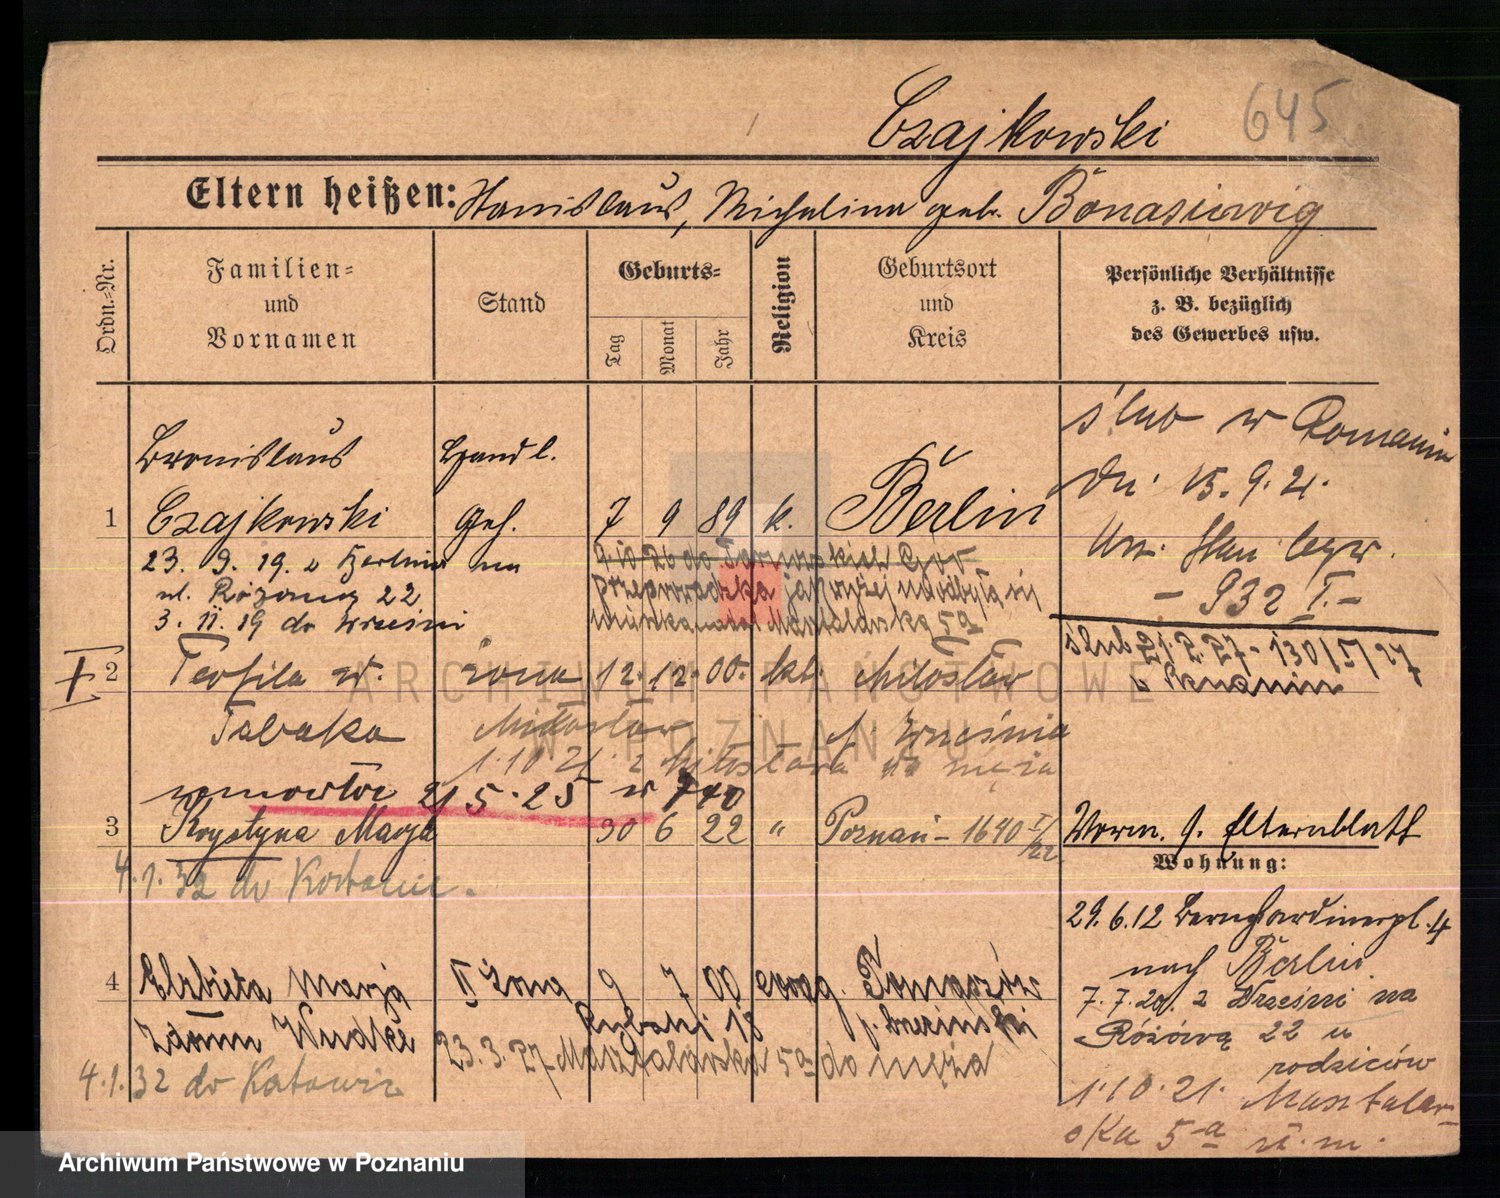 645
Czajkowski
Eltern heißen: Stanislaus, Michalina geb. Bonasiewicz
Ordn.=Nr.
Familien=
und
Vornamen
Stand
Geburts=
Tag
Monat
Jahr
Religion
Geburtsort
und
Kreis
Persönliche Verhältnisse
z. B. bezüglich
des Gewerbes usw.
Bronislaus Handl.
1 Czajkowski Geh. 7 9 89 k. Berlin
23. 9. 19. z Berlina na
ul. Różaną 22
3. II. 19 do Wrześni
9 10 26 do
przeprowadzka jak wyżej nie odbyła się
mieszka nadal Masztalarska 5a
2 Teofila z d. żona 12. 12. 00. kt. Miłosław
Tabaka Miłosław p. Września
1. 10 21. z Miłosławia do męża
zmarła 21 5. 25 w
3 Krystyna Marja 30 6 22 " Poznań - 1640 I/22
4. 1. 32 do Katowic.
4 Elżbieta Marja II żona 9 7 00 ewag.
Rybaki 18
4. 1. 32 do Katowic 23. 3. 27 Masztalarska 5a do męża
ślub w Poznaniu
dn. 15. 9. 21.
Urz. Stan. cyw.
- 932 I. -
ślub 21.2.27 - 130/I/27
w Poznaniu
Verm. g. Elternblatt
Wohnung:
29. 6. 12 Bernhardinerpl. 4
nach Berlin.
7. 7. 20. z Wrześni na
Różową 22 u
rodziców
1. 10. 21. Masztalar-
ska 5a
ARCHIWUM PAŃSTWOWE
W POZNANIU
Archiwum Państwowe w Poznaniu